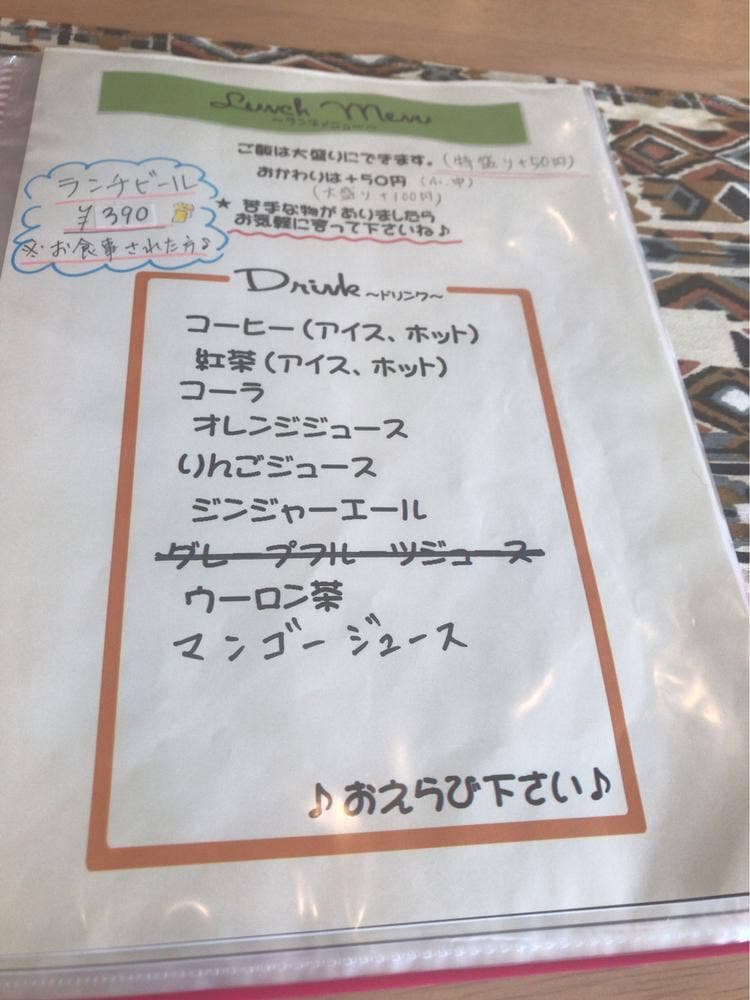 Lunch Menu
～ランチメニュー～
ご飯は大盛りにできます。(特盛り+50円)
おかわりは+50円 (小、中)
(大盛り+100円)
★ 苦手な物がありましたら
お気軽に言って下さいね♪
ランチビール
¥390
※お食事された方♪
Drink ～ドリンク～
コーヒー(アイス、ホット)
紅茶(アイス、ホット)
コーラ
オレンジジュース
りんごジュース
ジンジャーエール
グレープフルーツジュース
ウーロン茶
マンゴージュース
♪おえらび下さい♪